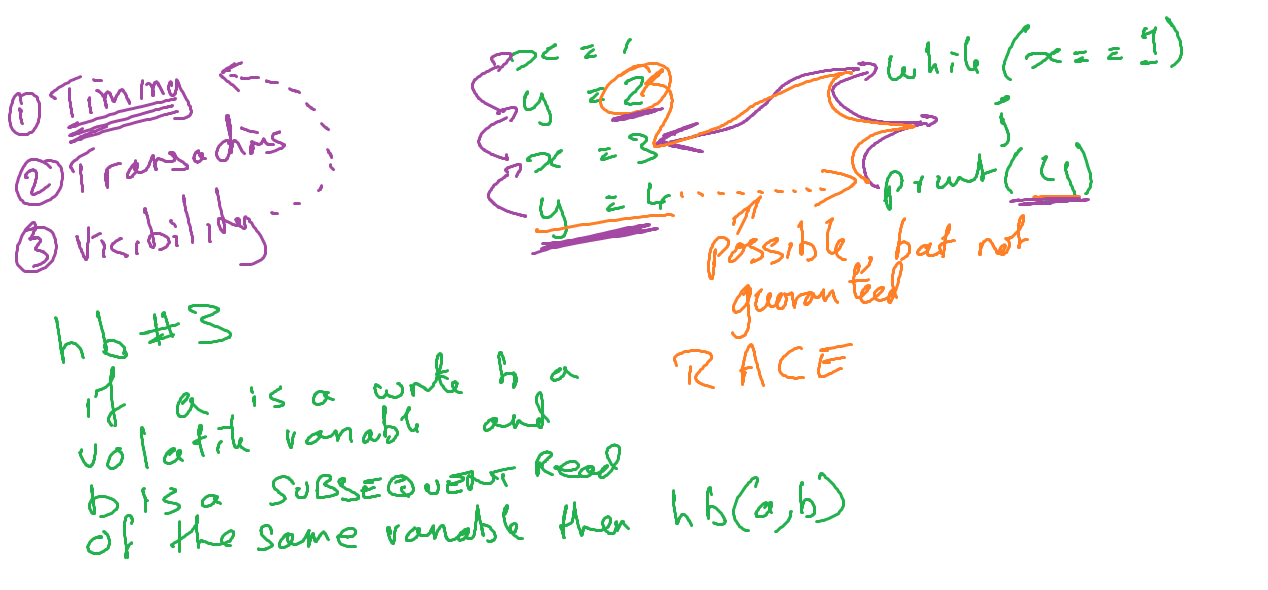 ① Timing
② Transactions
③ Visibility
x = 1
y = 2
x = 3
y = 4
while (x == 1)
;
print(y)
possible, but not
guaranteed
RACE
hb #3
if a is a write to a
volatile variable and
b is a SUBSEQUENT Read
of the same variable then hb(a,b)